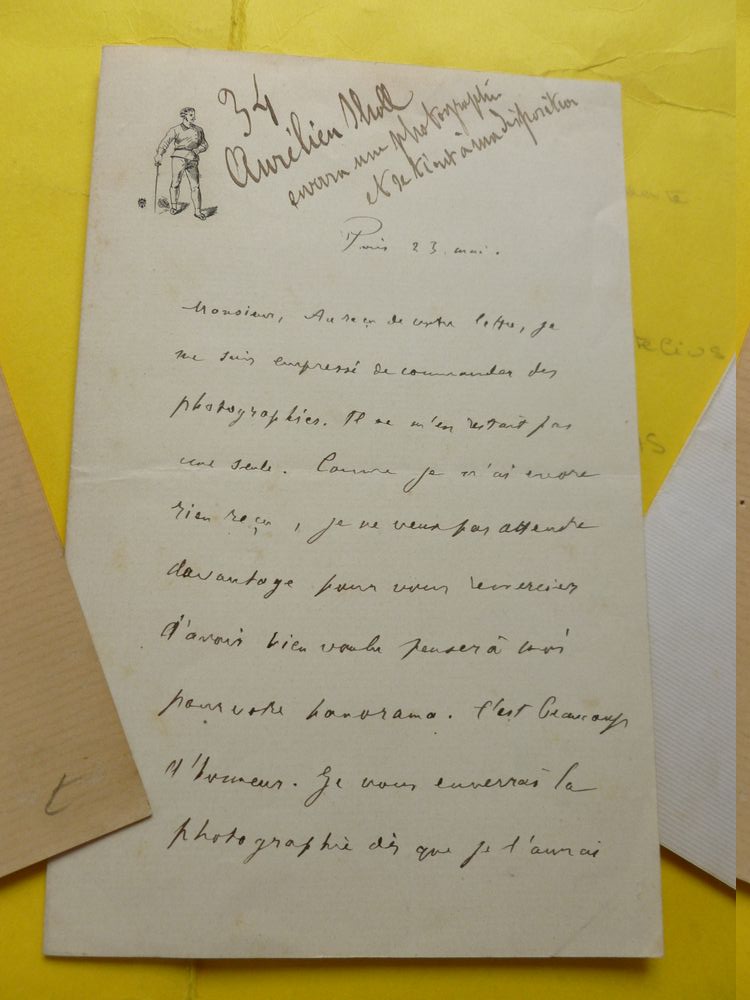 34
Aurélien Scholl
enverra une photographie
et se tient à ma disposition
Paris 23 mai.
Monsieur, Au reçu de votre lettre, je
me suis empressé de commander des
photographies. Il ne m'en restait pas
une seule. Comme je n'ai encore
rien reçu, je ne veux pas attendre
davantage pour vous remercier
d'avoir bien voulu penser à moi
pour votre panorama. C'est beaucoup
d'honneur. Je vous enverrai la
photographie dès que je l'aurai